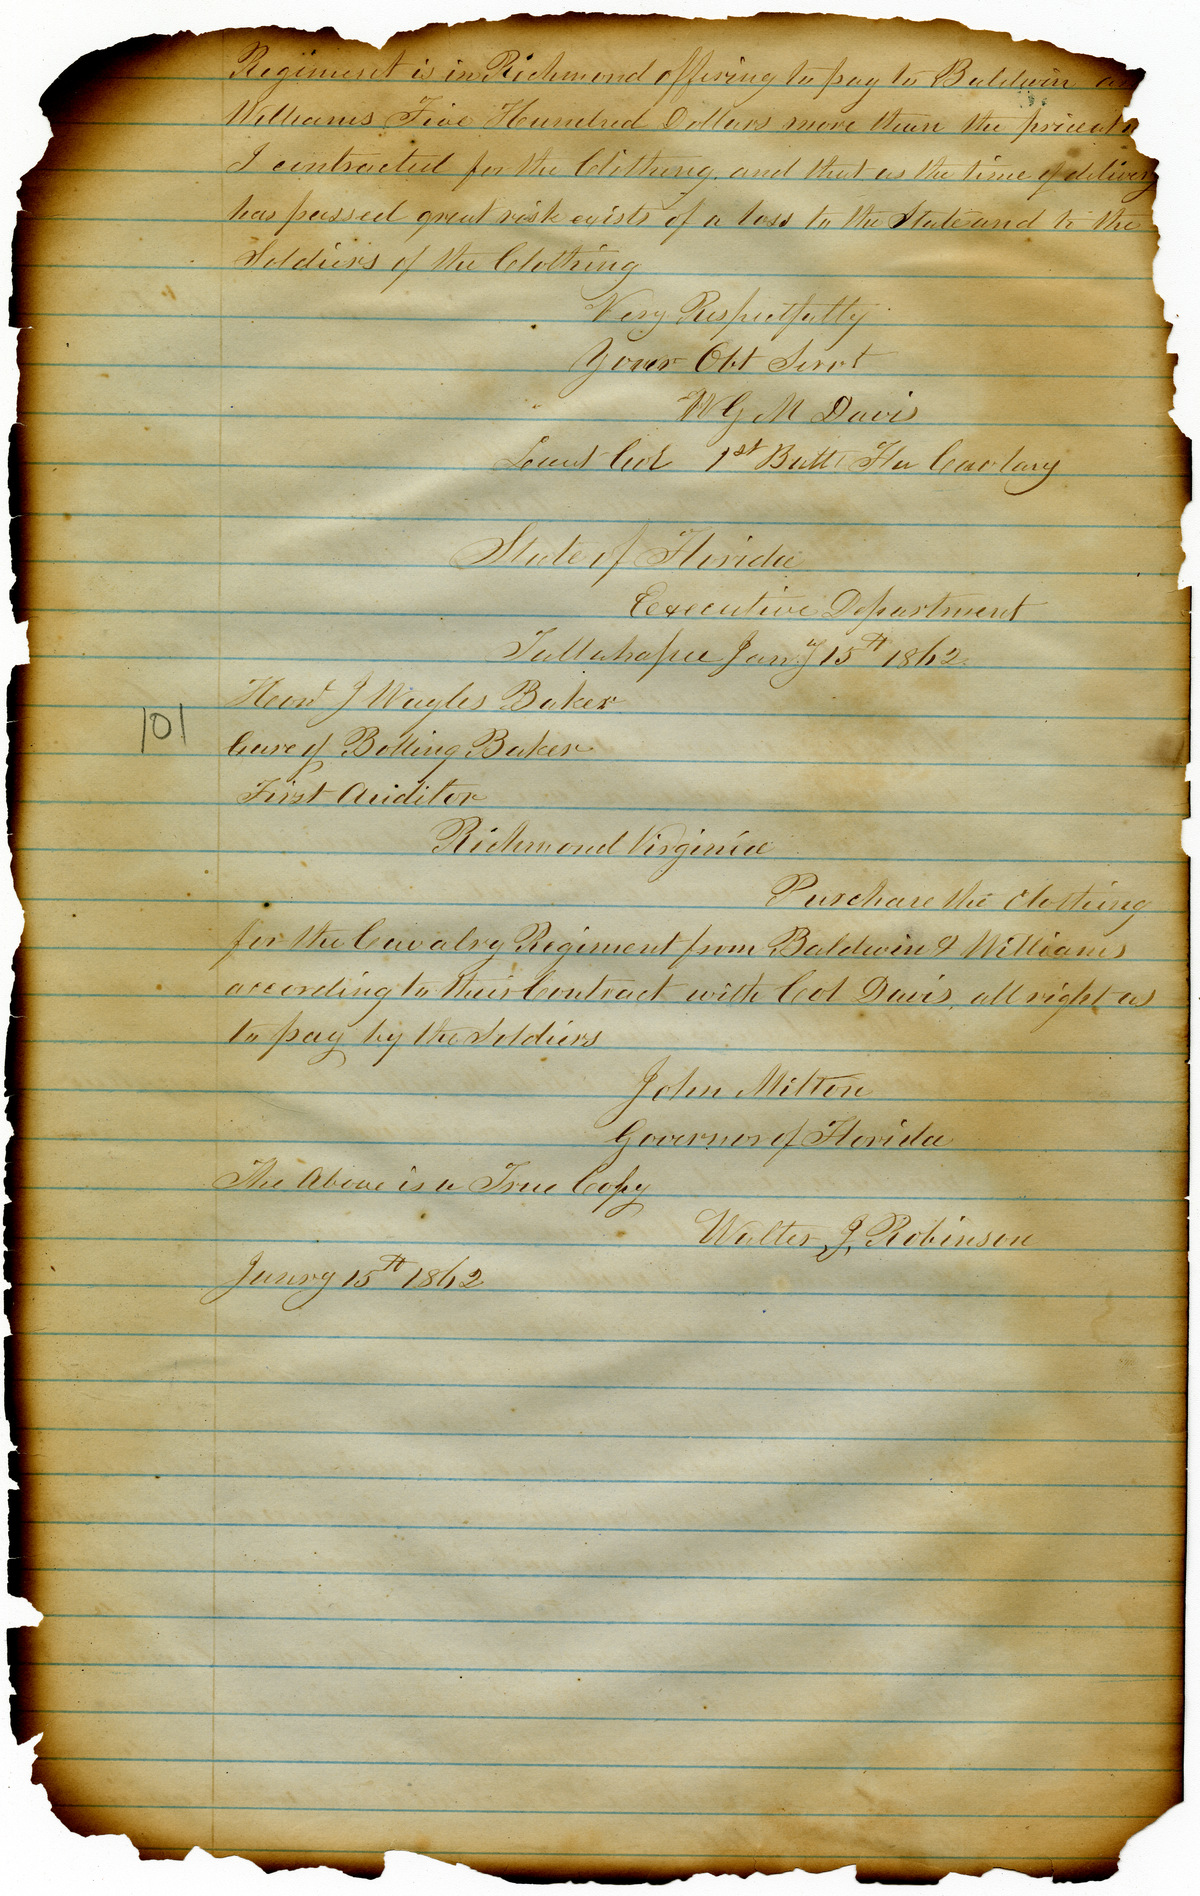 Regiment is in Richmond offering to pay to Baldwin an
Williams Five Hundred Dollars more than the price at
I contracted for the Clothing. and that as the time of delivery
has passed great risk exists of a loss to the State and to the
Soldiers of the Clothing
Very Respectfully
Your Obt Servt
W G M Davis
Leut Col 1st Batt Fla Cavlary
State of Florida
Executive Department
Tallahassee Jany 15th 1862
Hon J Wayles Baker
Care of Bolling Baker
First Auditor
Richmond Virginia
101
Purchase the clothing
for the Cavalry Regiment from Baldwin & Williams
according to their Contract with Col Davis, all right as
to pay by the Soldiers
John Milton
Governor of Florida
The Above is a True Copy
Walter J. Robinson
Janry 15th 1862